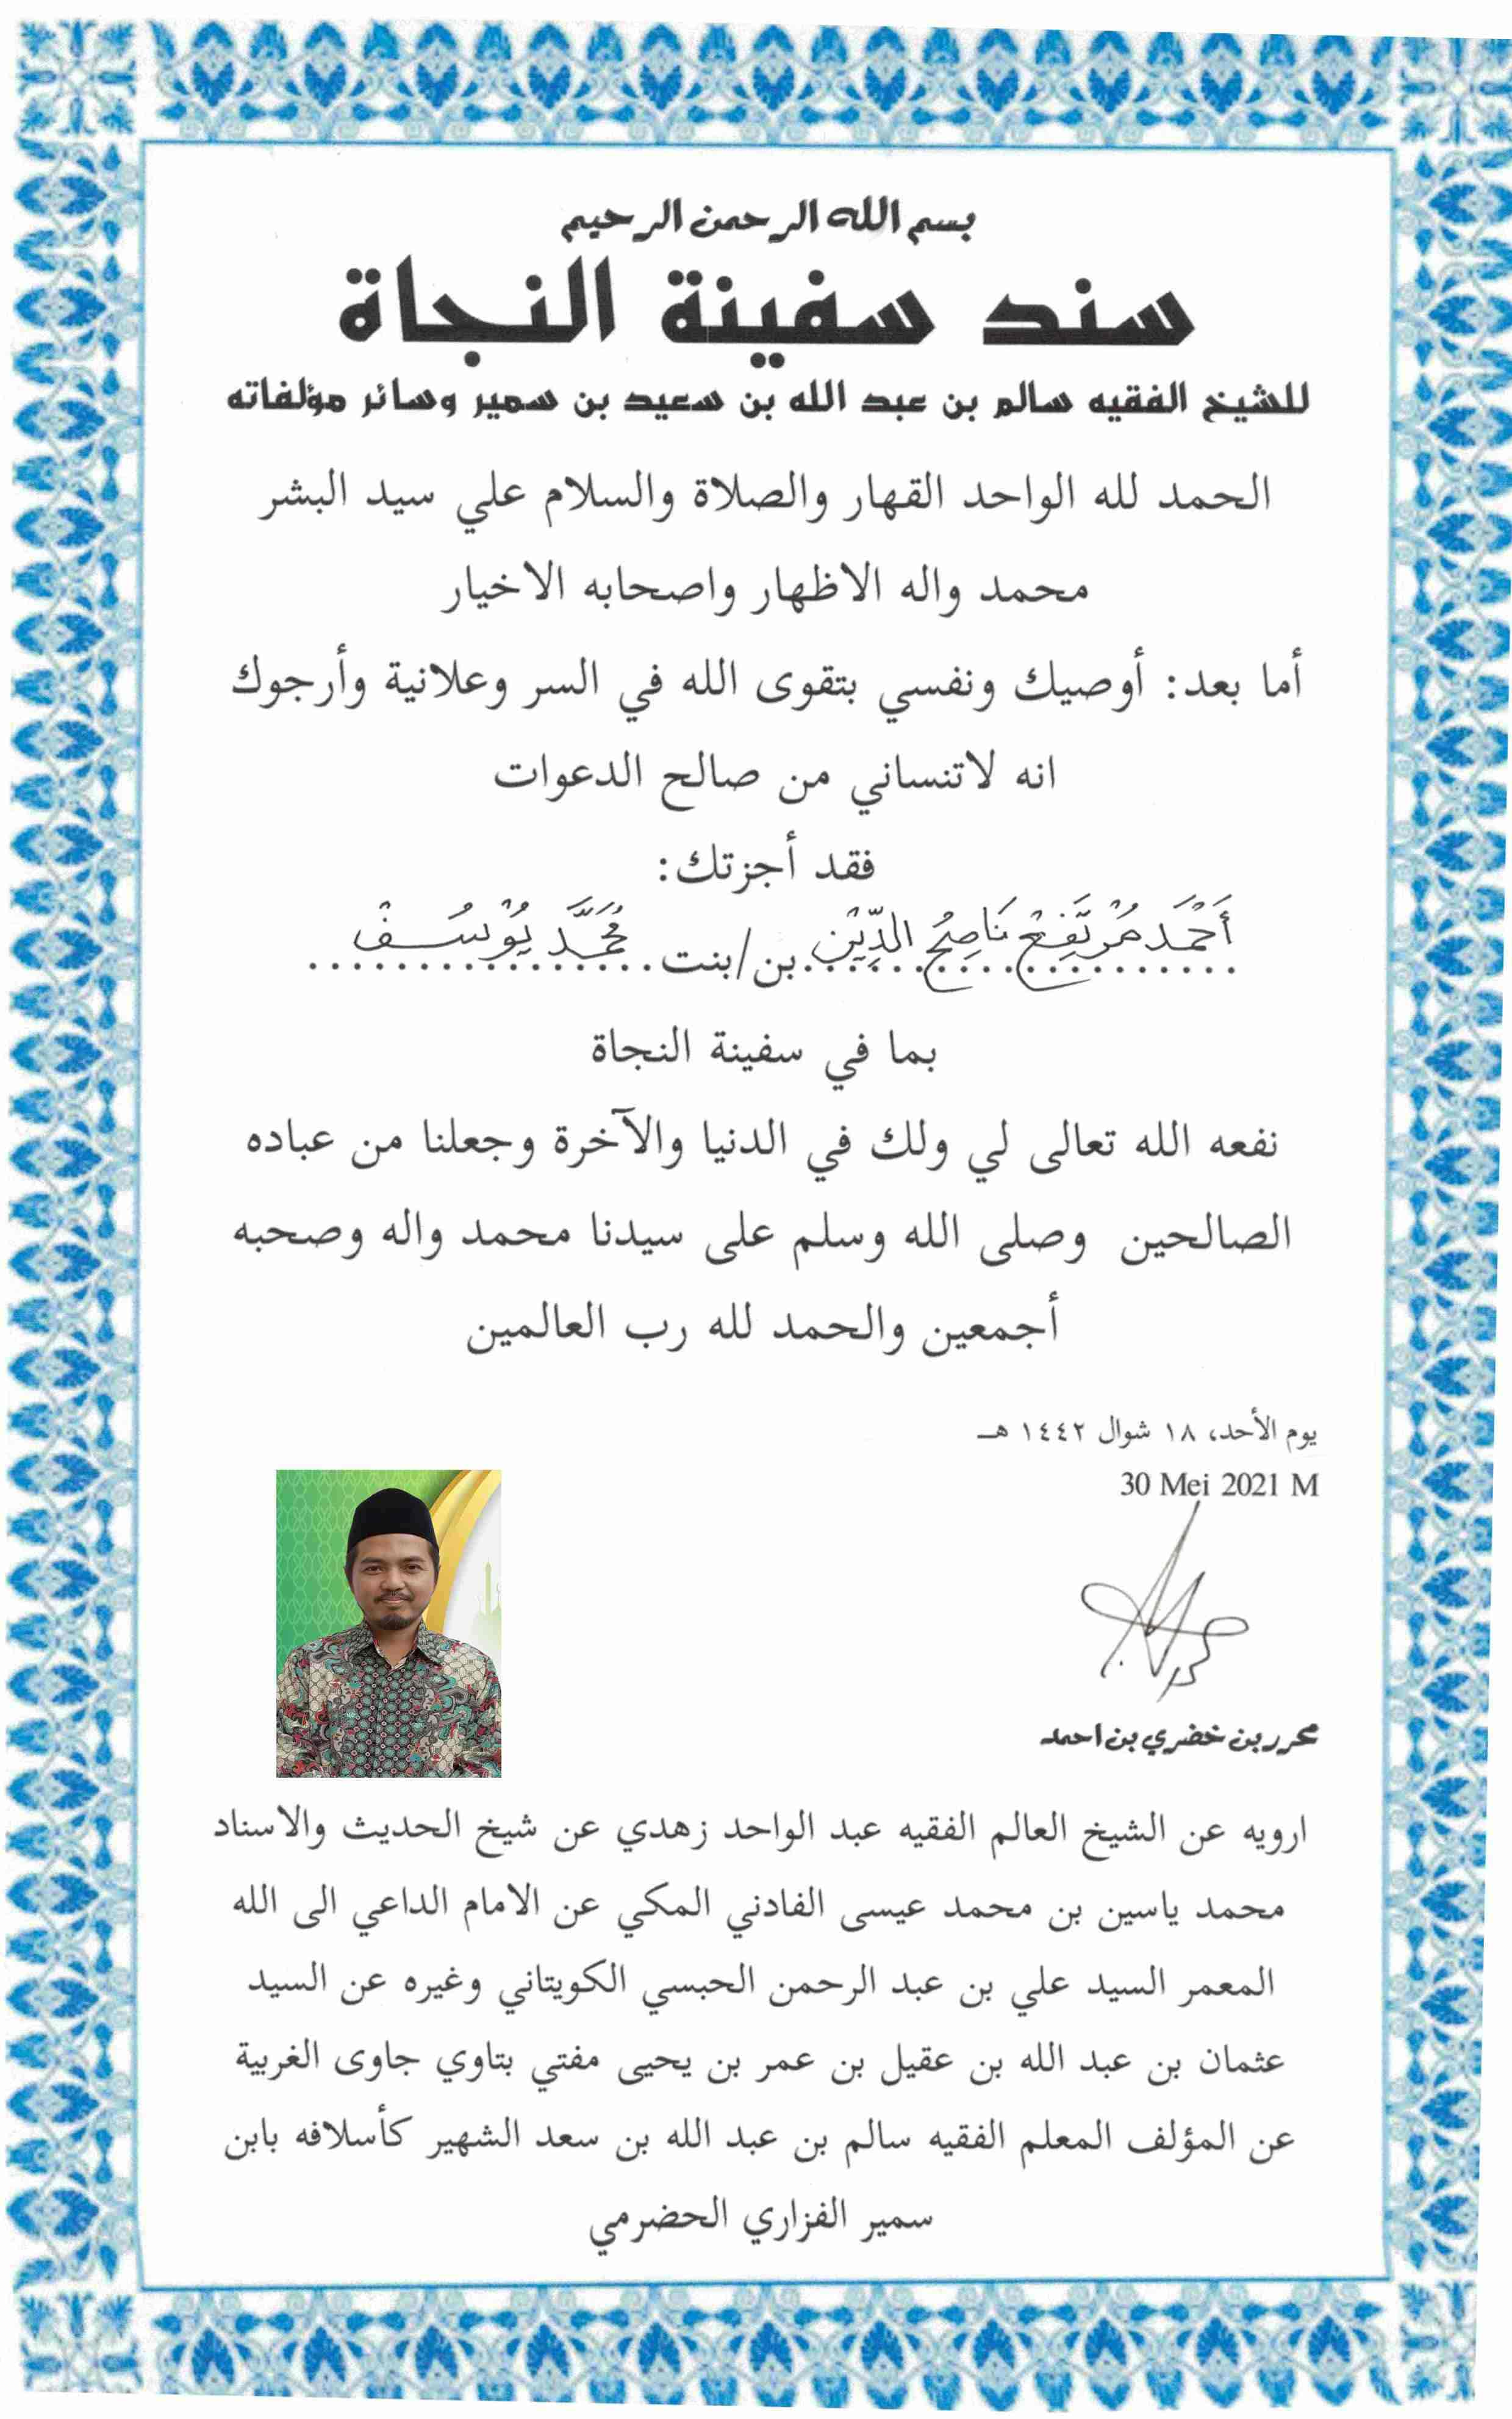 بسم الله الرحمن الرحيم
سند سفينة النجاة
للشيخ الفقيه سالم بن عبد الله بن سعيد بن سمير وسائر مؤلفاته
الحمد لله الواحد القهار والصلاة والسلام علي سيد البشر
محمد واله الاظهار واصحابه الاخيار
أما بعد: أوصيك ونفسي بتقوى الله في السر وعلانية وأرجوك
انه لاتنساني من صالح الدعوات
فقد أجزتك:
أَحْمَد مُرْتَفِعْ نَاصِحُ الدِّيْن بن/بنت مُحَمَّد يُوْسُـف
بما في سفينة النجاة
نفعه الله تعالى لي ولك في الدنيا والآخرة وجعلنا من عباده
الصالحين وصلى الله وسلم على سيدنا محمد واله وصحبه
أجمعين والحمد لله رب العالمين
يوم الأحد، ١٨ شوال ١٤٤٢ هـ
30 Mei 2021 M
محرر بن خضري بن احمد
ارويه عن الشيخ العالم الفقيه عبد الواحد زهدي عن شيخ الحديث والاسناد
محمد ياسين بن محمد عيسى الفادني المكي عن الامام الداعي الى الله
المعمر السيد علي بن عبد الرحمن الحبسي الكويتاني وغيره عن السيد
عثمان بن عبد الله بن عقيل بن عمر بن يحيى مفتي بتاوي جاوى الغربية
عن المؤلف المعلم الفقيه سالم بن عبد الله بن سعد الشهير كأسلافه بابن
سمير الفزاري الحضرمي